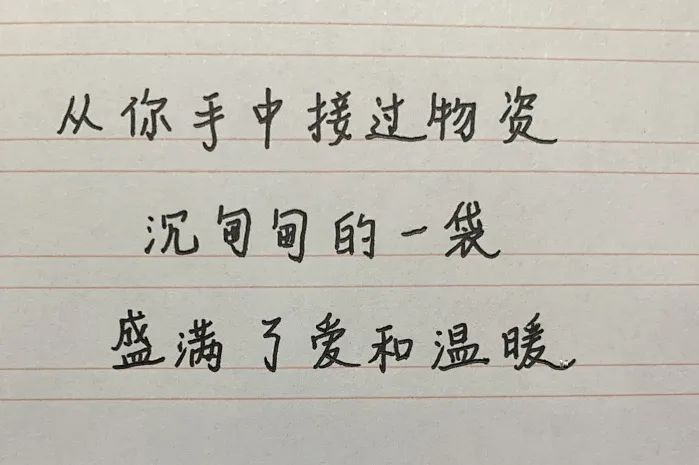 从你手中接过物资
沉甸甸的一袋
盛满了爱和温暖